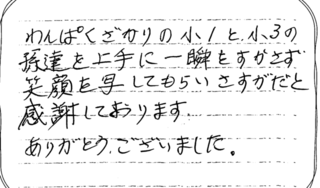 わんぱくざかりの小1と小3の
孫達を上手に一瞬をすかさず
笑顔を写してもらいさすがだと
感謝しております。
ありがとうございました。